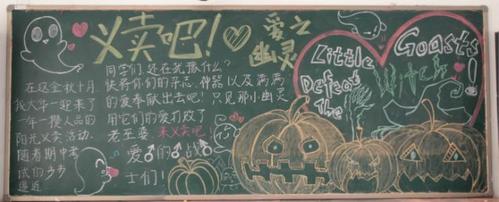 义卖吧!
爱之
幽灵
在这金秋十月
我大华一迎来了
一年一攒人品的
阳光义卖活动.
随着期中考
试的步步
逼近
同学们,还在犹豫什么?
快将你们的杂志、神器以及满满
的爱奉献出去吧!只见那小幽灵
用它们的爱打败了
老巫婆 来义卖吧!
爱♂的♂战♂
士们!
Little Goasts!
Defeat
The Witch